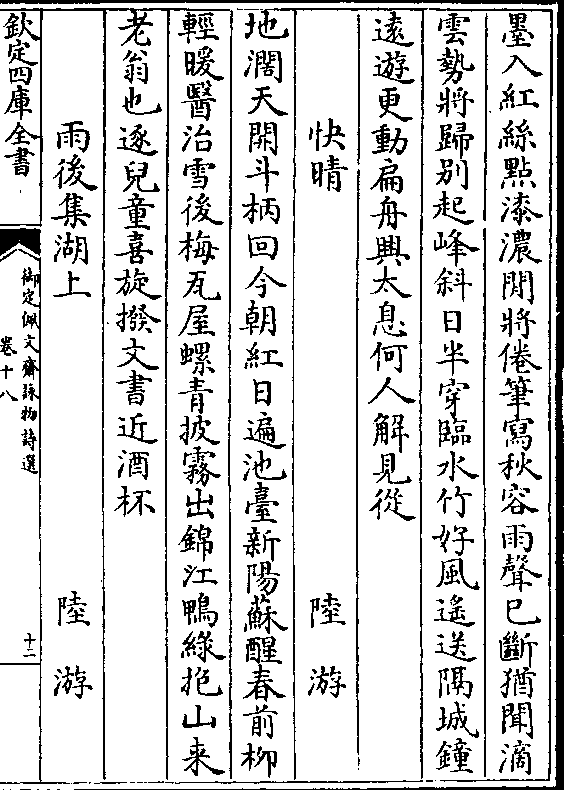 墨入紅絲點漆濃閒將倦筆寫秋容雨聲已斷猶聞滴
雲勢將歸别起峰斜日半穿臨水竹好風遥送隔城鐘
逺遊更動扁舟興太息何人解見從
快晴 陸游
地濶天開斗柄回今朝紅日遍池臺新陽蘇醒春前柳
輕暖醫治雪後梅瓦屋螺青披霧出錦江鴨緑抱山来
老翁也逐兒童喜旋撥文書近酒杯
雨後集湖上 陸游
欽定四庫全書
御定佩文齋詠物詩選
卷十八
十二